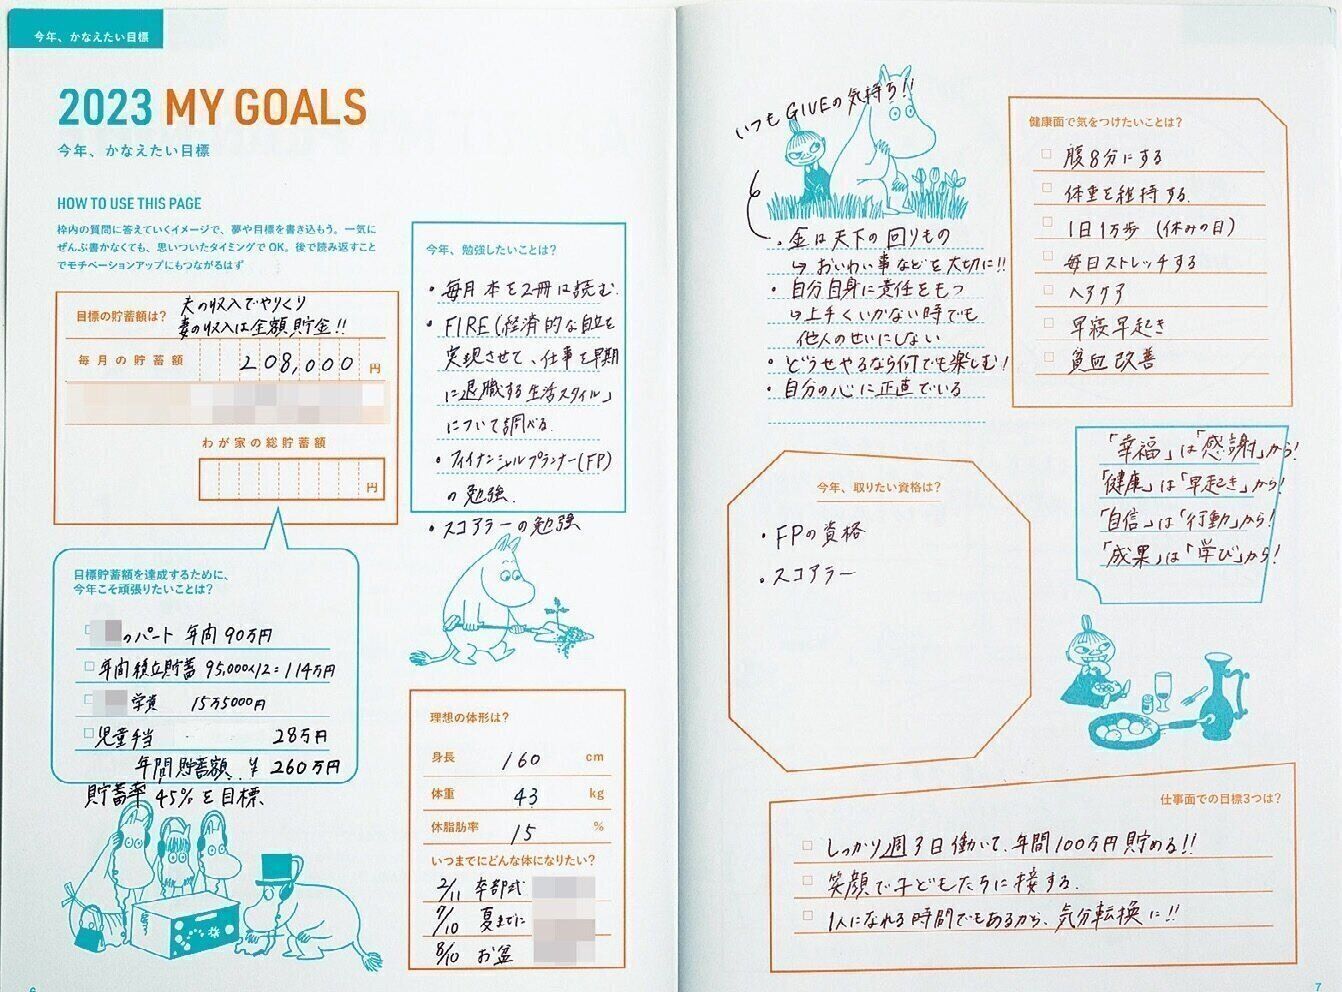 今年、かなえたい目標
2023 MY GOALS
今年、かなえたい目標
HOW TO USE THIS PAGE
枠内の質問に答えていくイメージで、夢や目標を書き込もう。一気に
ぜんぶ書かなくても、思いついたタイミングでOK。後で読み返すこと
でモチベーションアップにもつながるはず
目標の貯蓄額は?
夫の収入でやりくり
妻の収入は全額貯金!!
毎月の貯蓄額 208,000 円
わが家の総貯蓄額
円
目標貯蓄額を達成するために、
今年こそ頑張りたいことは?
のパート 年間90万円
年間積立貯蓄 95,000×12=114万円
学資 15万5000円
児童手当 28万円
年間貯蓄額 ¥260万円
貯蓄率45%を目標、
今年、勉強したいことは?
・毎月本を2冊は読む。
・FIRE(経済的な自立を
実現させて、仕事を早期
に退職する生活スタイル」
について調べる。
・ファイナンシャルプランナー(FP)
の勉強。
・スコアラーの勉強
理想の体形は?
身長 160 cm
体重 43 kg
体脂肪率 15 %
いつまでにどんな体になりたい?
2/11 卒部式
7/10 夏までに
8/10 お盆
6
いつもGIVEの気持ち!!
・金は天下の回りもの
↳おいわい事などを大切に!!
・自分自身に責任をもつ
↳上手くいかない時でも
他人のせいにしない
・どうせやるなら何でも楽しむ!
・自分の心に正直でいる
健康面で気をつけたいことは?
腹8分にする
体重を維持する。
1日1万歩(休みの日)
毎日ストレッチする
ヘアケア
早寝早起き
貧血改善
「幸福」は「感謝」から!
「健康」は「早起き」から!
「自信」は「行動」から!
「成果」は「学び」から!
今年、取りたい資格は?
・FPの資格
・スコアラー
仕事面での目標3つは?
しっかり週3日働いて、年間100万円貯める!!
笑顔で子どもたちに接する。
1人になれる時間でもあるから、気分転換に!!
7